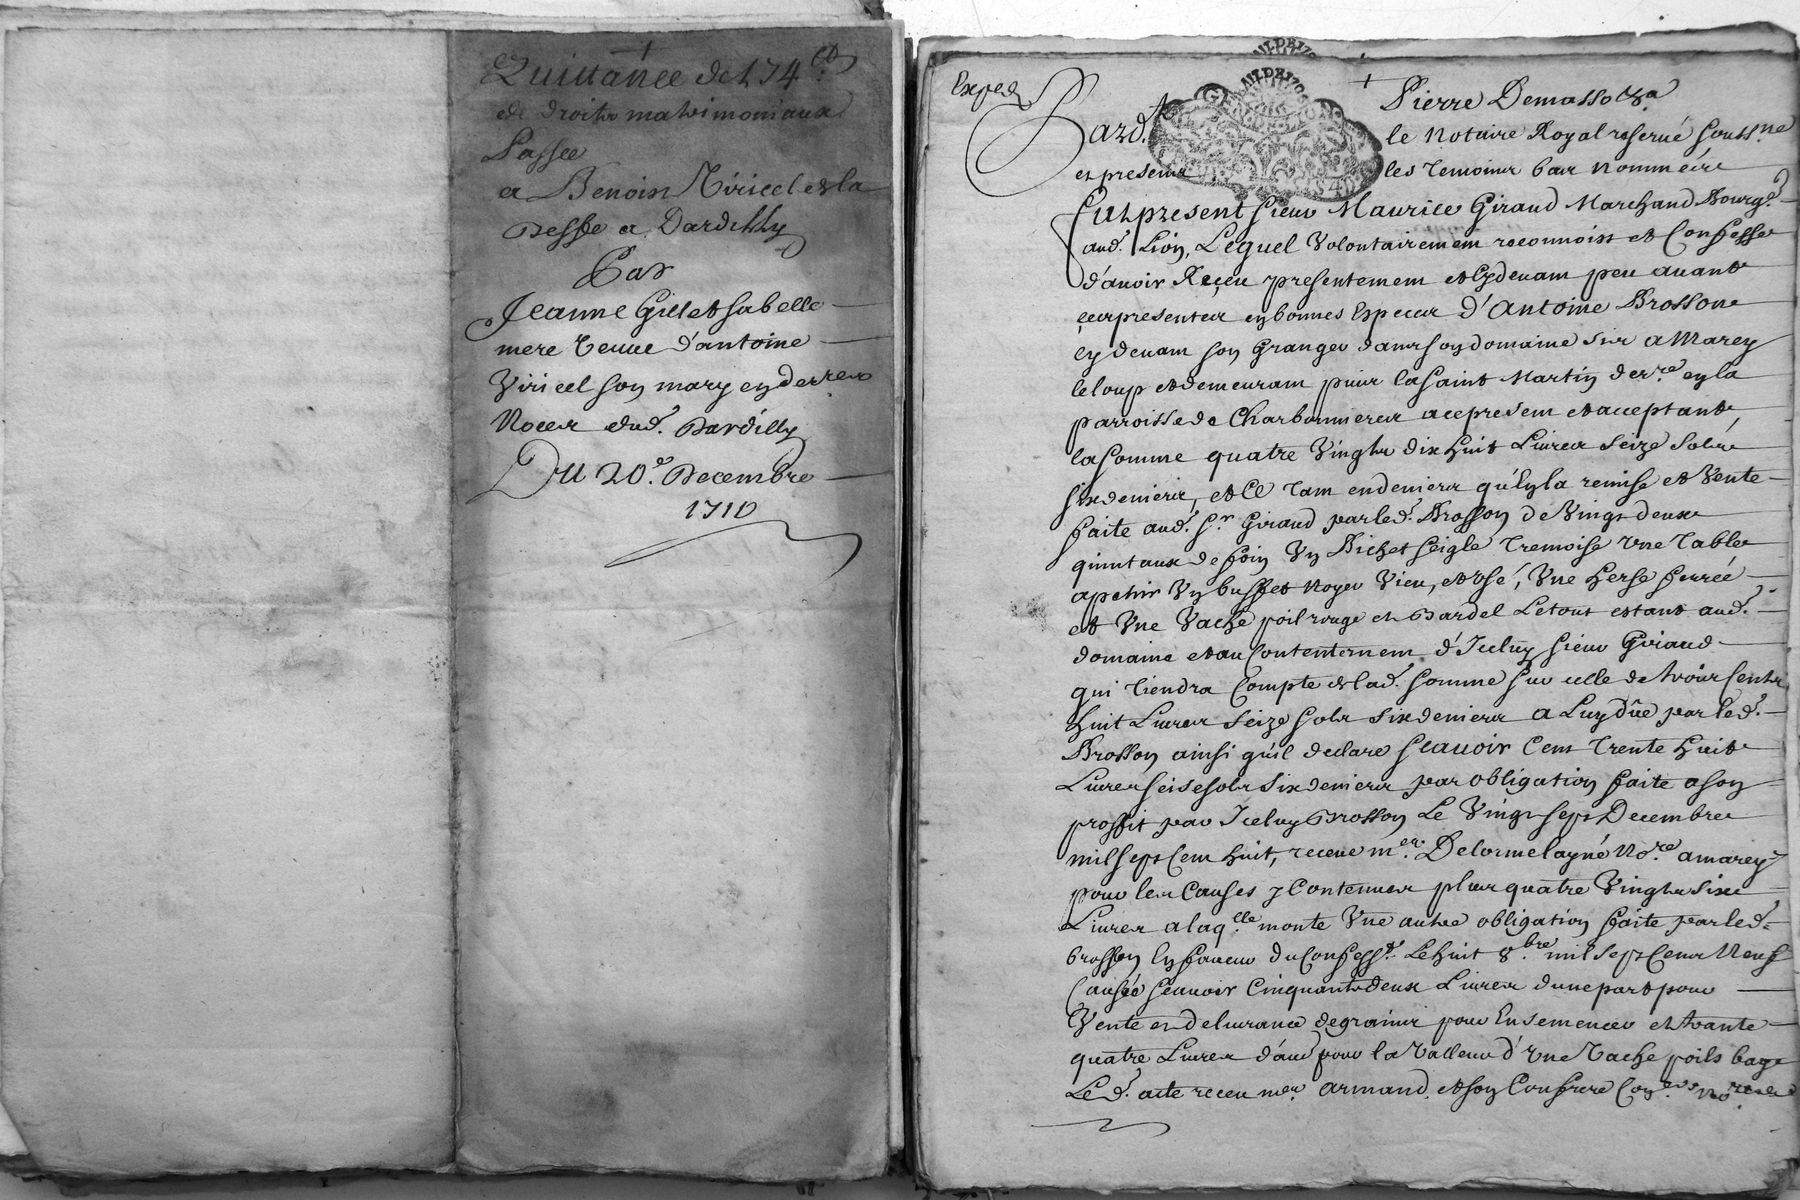 Quittance de 174 lt
de droits matrimoniaux
Passée
a Benoist Viricel de la
Desste a Dardilly
Par
Jeanne Gillet sa belle
mere veuve d'antoine
Viricel son mary en derres
Noces dud. Dardilly
Du 20e. Decembre
1710
Exped
Pard.t Pierre Demasso
le Notaire Royal reservé souss.ne
et presens les temoins bas nommés
Fut present sieur Maurice Giraud Marchand Bourg.s
aud. Lion, Lequel Volontairement reconnoist et Confesse
d'avoir Reçeu presentement et cy devant peu avant
ces presentes en bonnes Especes d'Antoine Brosson
cy devant son Granger dans son domaine sis a Marcy
le loup et demeurant puis la Saint Martin der.re en la
parroisse de Charbonnieres ace present et acceptant
la Somme quatre Vingts dix huit Livres Seize Sols
six deniers, et Ce tant en deniers qu'En la remise et Vente
faite aud. S.r Giraud par led. Brosson de Vingt deux
quintaux de foin Un Bichet seigle Tremoise Une Table
a petrir Un buffet Noyer Vieu, et Usé, Une herse ferrée
et Une Vache poil rouge et Bardel Le tout estant aud.
domaine et au Contentement d'Iceluy sieur Giraud
qui Tiendra Compte de lad. Somme sur celle de
huit Livres Seize Sols Six deniers a Luy Dûe par led.
Brosson ainsi qu'il declare Scavoir Cent Trente huit
Livres seise sols six deniers par obligation faite a son
proffit par Iceluy Brosson Le Vingt sept Decembre
mil sept Cent huit, receue me. Delorme layné No.re a marcy
pour les Causes y Contenues plus quatre Vingts six
Livres a laq.lle monte Une autre obligation faite par led.
brosson En faveur du Confess.t Le huit 8.bre mil sept Cent Neuf
Causée Scavoir Cinquante deux Livres d'une part pour
Vente et delivrance de grains pour Ensemencer et trante
quatre Livres d'au.e pour la Valleur d'Une Vache poils baye
Led. acte receu me. Armand et son Confrere Con.ers no.res